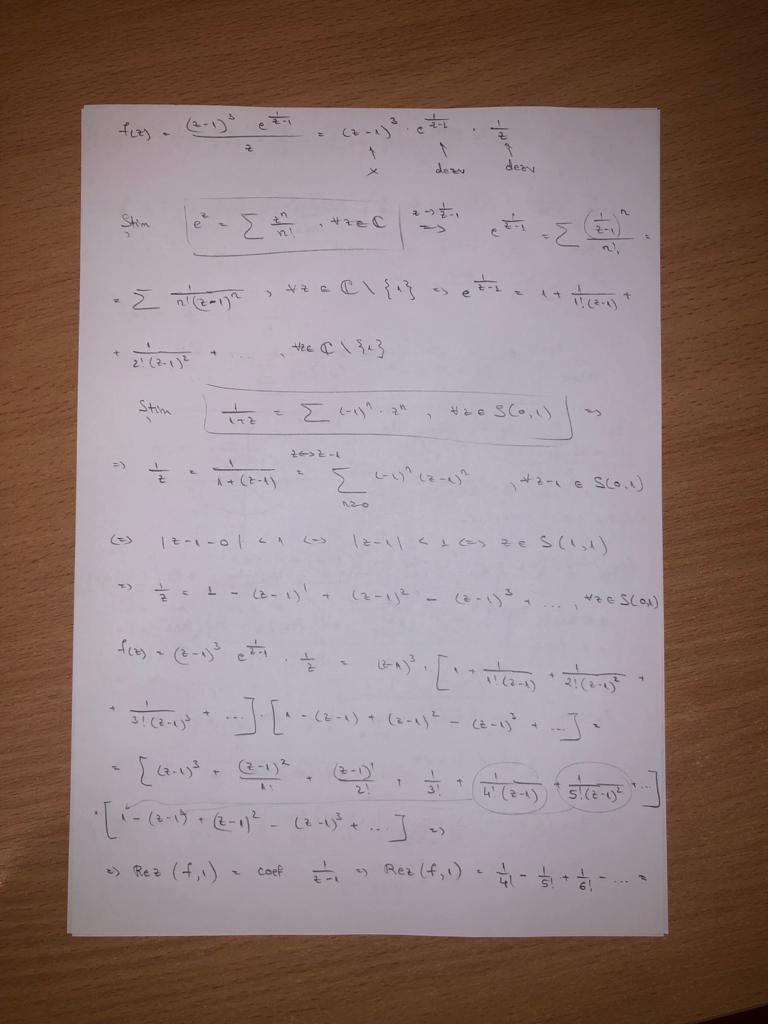 f(z) = (z-1)³ e^(1/(z-1)) / z = (z-1)³ · e^(1/(z-1)) · 1/z
↑ ↑ ↑
x dezv dezv
Știm e^z = Σ zⁿ/n! , ∀z∈ℂ z→1/(z-1) => e^(1/(z-1)) = Σ (1/(z-1))ⁿ/n! =
= Σ 1/(n!(z-1)ⁿ) , ∀z ∈ ℂ \ {1} => e^(1/(z-1)) = 1 + 1/(1!(z-1)) +
+ 1/(2!(z-1)²) + ... , ∀z∈ ℂ \ {1}
Știm 1/(1+z) = Σ (-1)ⁿ · zⁿ , ∀z ∈ S(0,1) =>
=> 1/z = 1/(1+(z-1)) z↔z-1 = Σ n≥0 (-1)ⁿ (z-1)ⁿ , ∀ z-1 ∈ S(0,1)
(=) |z-1-0| < 1 (=) |z-1| < 1 (=) z ∈ S(1,1)
=> 1/z = 1 - (z-1)¹ + (z-1)² - (z-1)³ + ... , ∀z∈S(0,1)
f(z) = (z-1)³ e^(1/(z-1)) · 1/z = (z-1)³ · [1 + 1/(1!(z-1)) + 1/(2!(z-1)²) +
+ 1/(3!(z-1)³) + ...] · [1 - (z-1) + (z-1)² - (z-1)³ + ...] =
= [(z-1)³ + (z-1)²/1! + (z-1)¹/2! + 1/3! + 1/(4!(z-1)) + 1/(5!(z-1)²) + ...]
· [1 - (z-1) + (z-1)² - (z-1)³ + ...] =>
=> Rez (f,1) = coef 1/(z-1) => Rez (f,1) = 1/4! - 1/5! + 1/6! - ... =